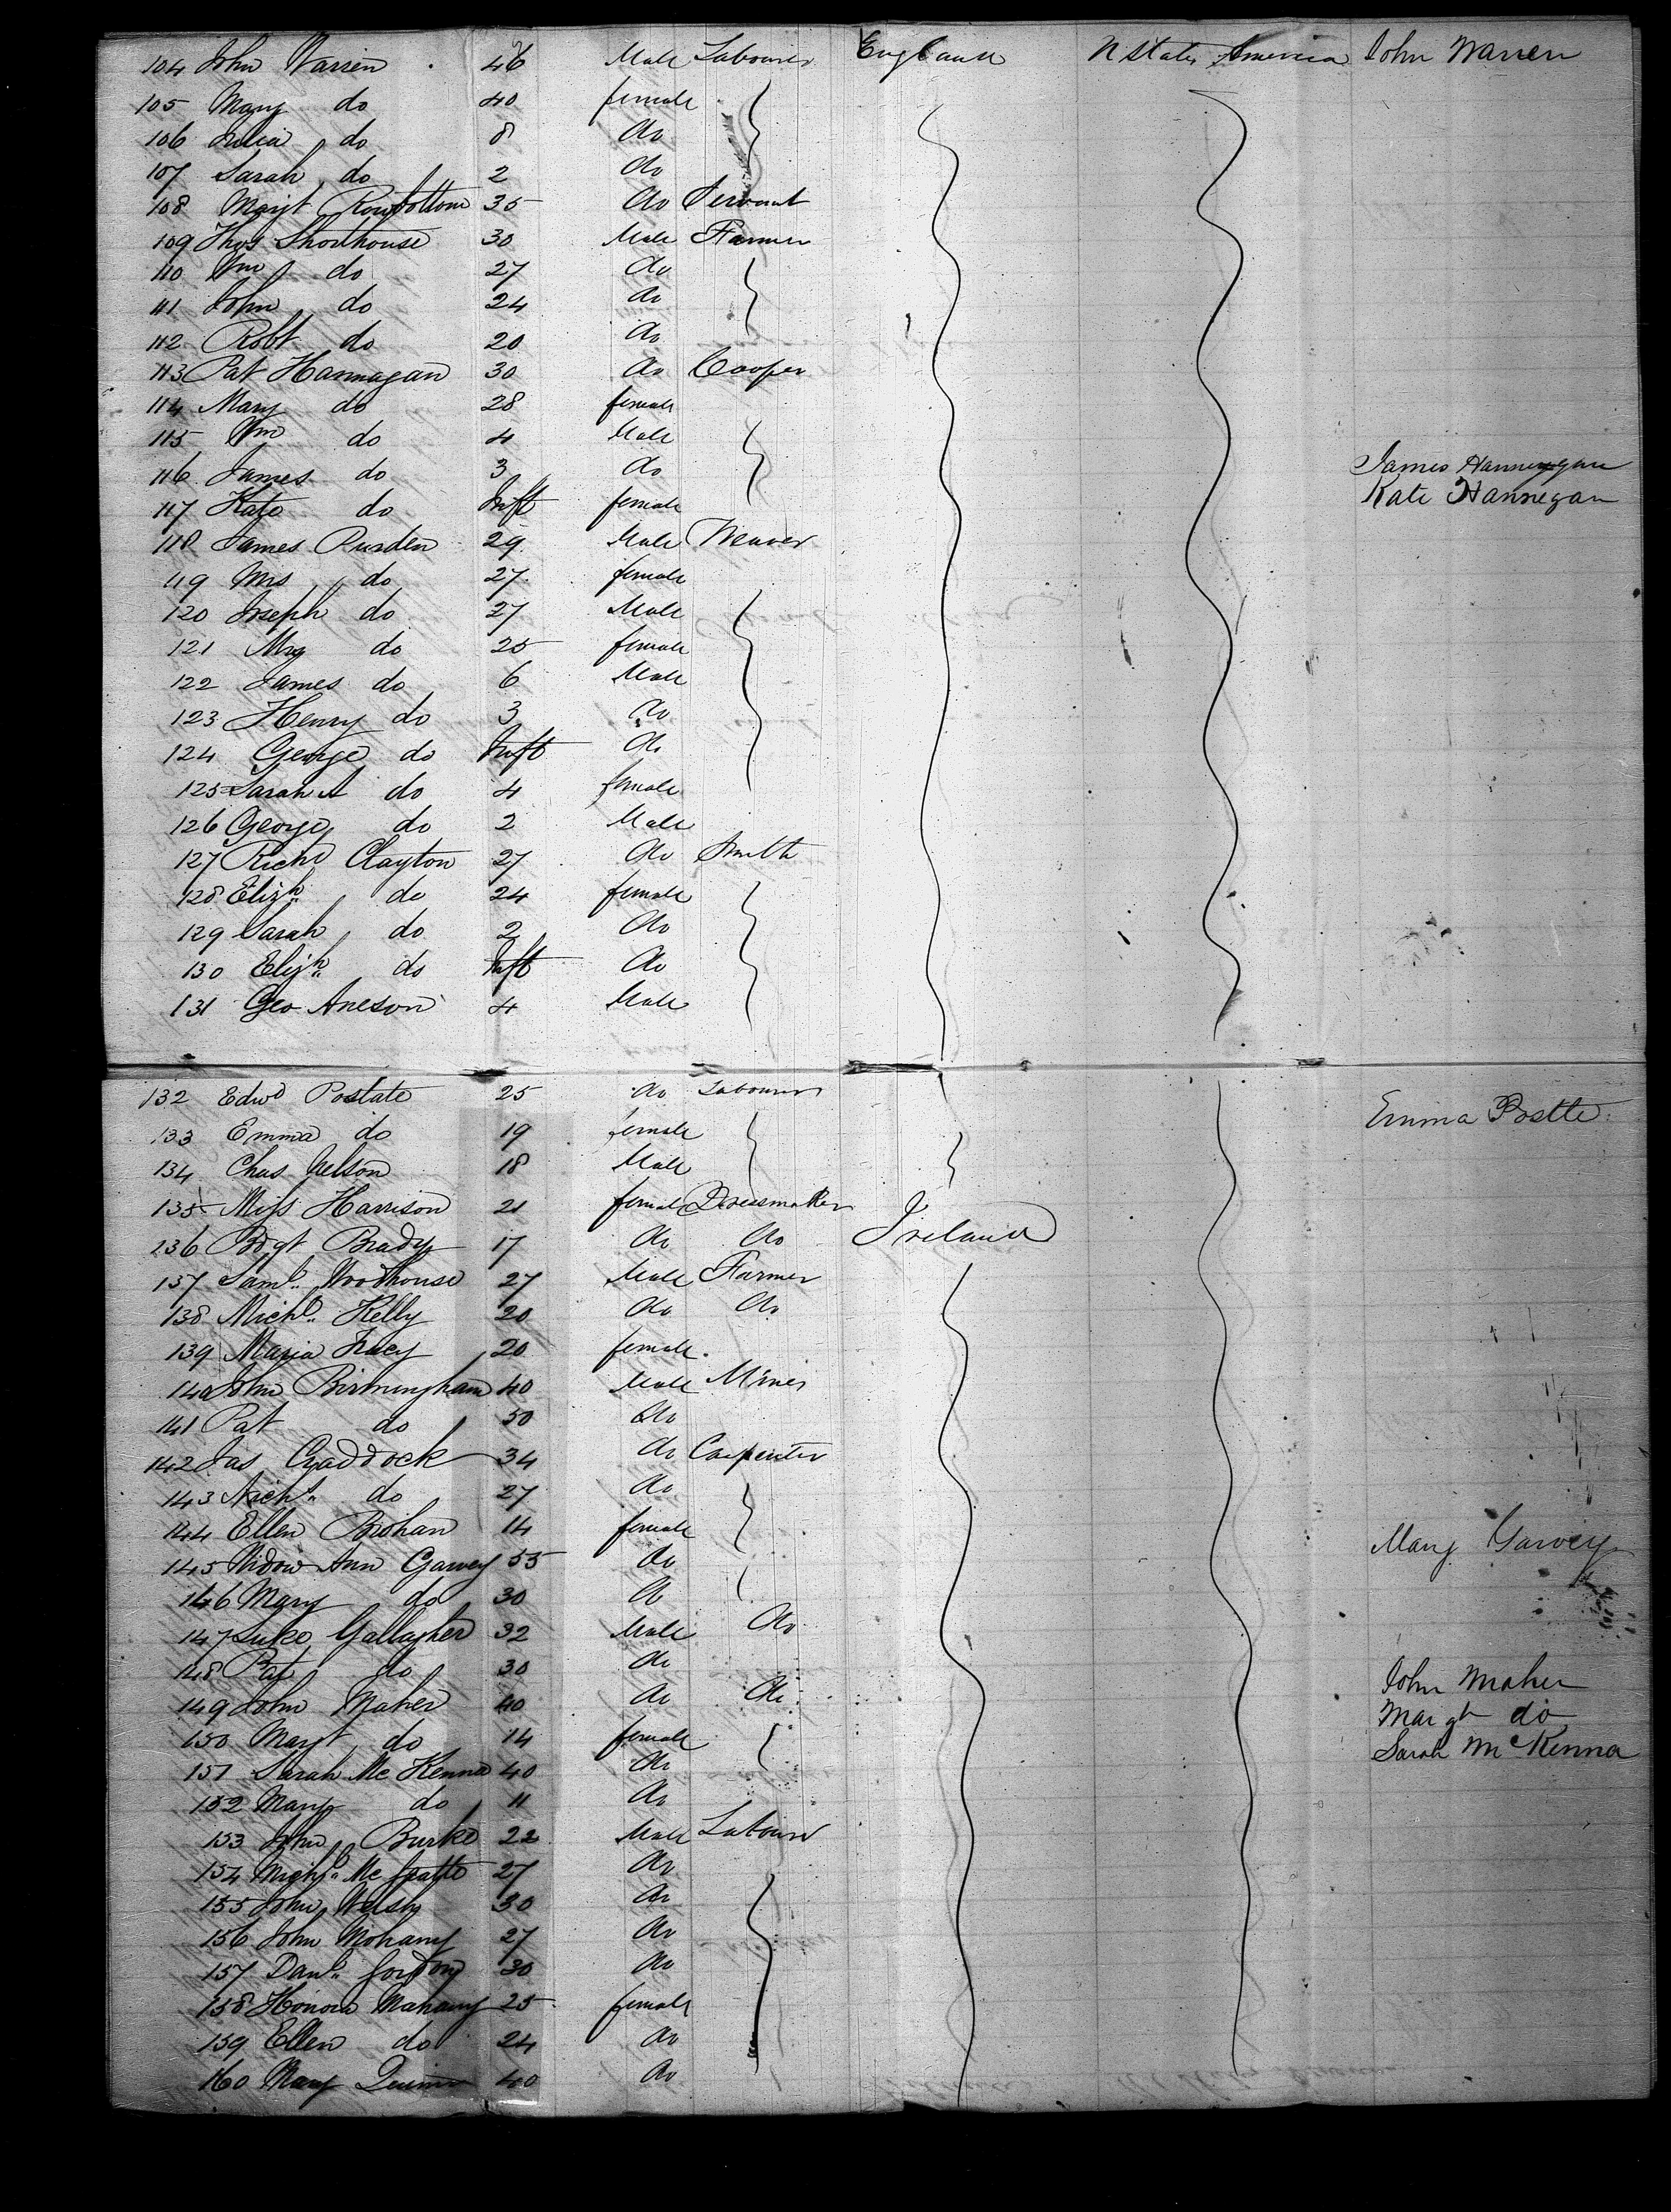 104 John Warren 46 Male Labourer England U States America John Warren
105 Mary do 40 female
106 Julia do 8 do
107 Sarah do 2 do
108 Margt Rowbottom 35 do Servant
109 Thos Shorthouse 30 Male Farmer
110 Wm do 27 do
111 John do 24 do
112 Robt do 20 do
113 Pat Hannagan 30 do Cooper
114 Mary do 28 female
115 Wm do 4 Male
116 James do 3 do James Hannegan
117 Kate do Inft female Kate Hannegan
118 James Purden 29 Male Weaver
119 Mrs do 27 female
120 Joseph do 27 Male
121 Mrs do 25 female
122 James do 6 Male
123 Henry do 3 do
124 George do Inft do
125 Sarah A do 4 female
126 George do 2 Male
127 Richd Clayton 27 do Smith
128 Elizh do 24 female
129 Sarah do 2 do
130 Elizh do Inft do
131 Geo Aneson 4 Male
132 Edwd Postate 25 do Labourer
133 Emma do 19 female Emma Postle
134 Chas Nelson 18 Male
135 Miss Harrison 21 female Dressmaker
236 Bdgt Brady 17 do do Ireland
137 Saml Woodhouse 27 Male Farmer
138 Michl Kelly 20 do do
139 Maria Tracy 20 female
140 John Birmingham 40 Male Miner
141 Pat do 50 do
142 Jas Craddock 34 do Carpenter
143 Nichs do 27 do
144 Ellen Brohan 14 female
145 Widow Ann Garvey 55 do Mary Garvey
146 Mary do 30 do
147 Luke Gallagher 32 Male do
148 Pat do 30 do
149 John Maher 40 do do John Maher
150 Margt do 14 female Margt do
151 Sarah Mc Kenna 40 do Sarah McKenna
152 Mary do 11 do
153 John Burke 22 Male Labourer
154 Michl Mc 27 do
155 John Welsh 30 do
156 John Mohany 27 do
157 Danl Gordon 30 do
158 Honora Mahany 25 female
159 Ellen do 24 do
160 Mary Quinn 40 do